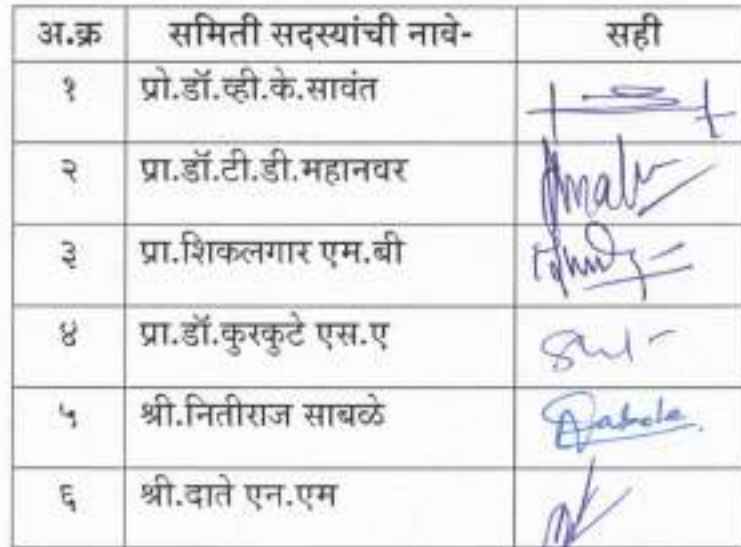 अ.क्र समिती सदस्यांची नावे- सही
१ प्रो.डॉ.व्ही.के.सावंत
२ प्रा.डॉ.टी.डी.महानवर
३ प्रा.शिकलगार एम.बी
४ प्रा.डॉ.कुरकुटे एस.ए
५ श्री.नितीराज साबळे
६ श्री.दाते एन.एम